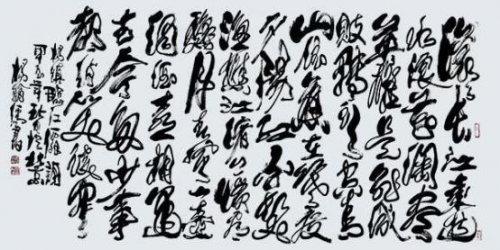 滚滚长江東逝
水浪花淘尽
英雄是非成
败转头空青
山依旧在几度
夕阳红白发
渔樵江渚上惯看
秋月春风一壶
浊酒喜相逢
古今多少事
都付笑谈中
杨慎临江仙词